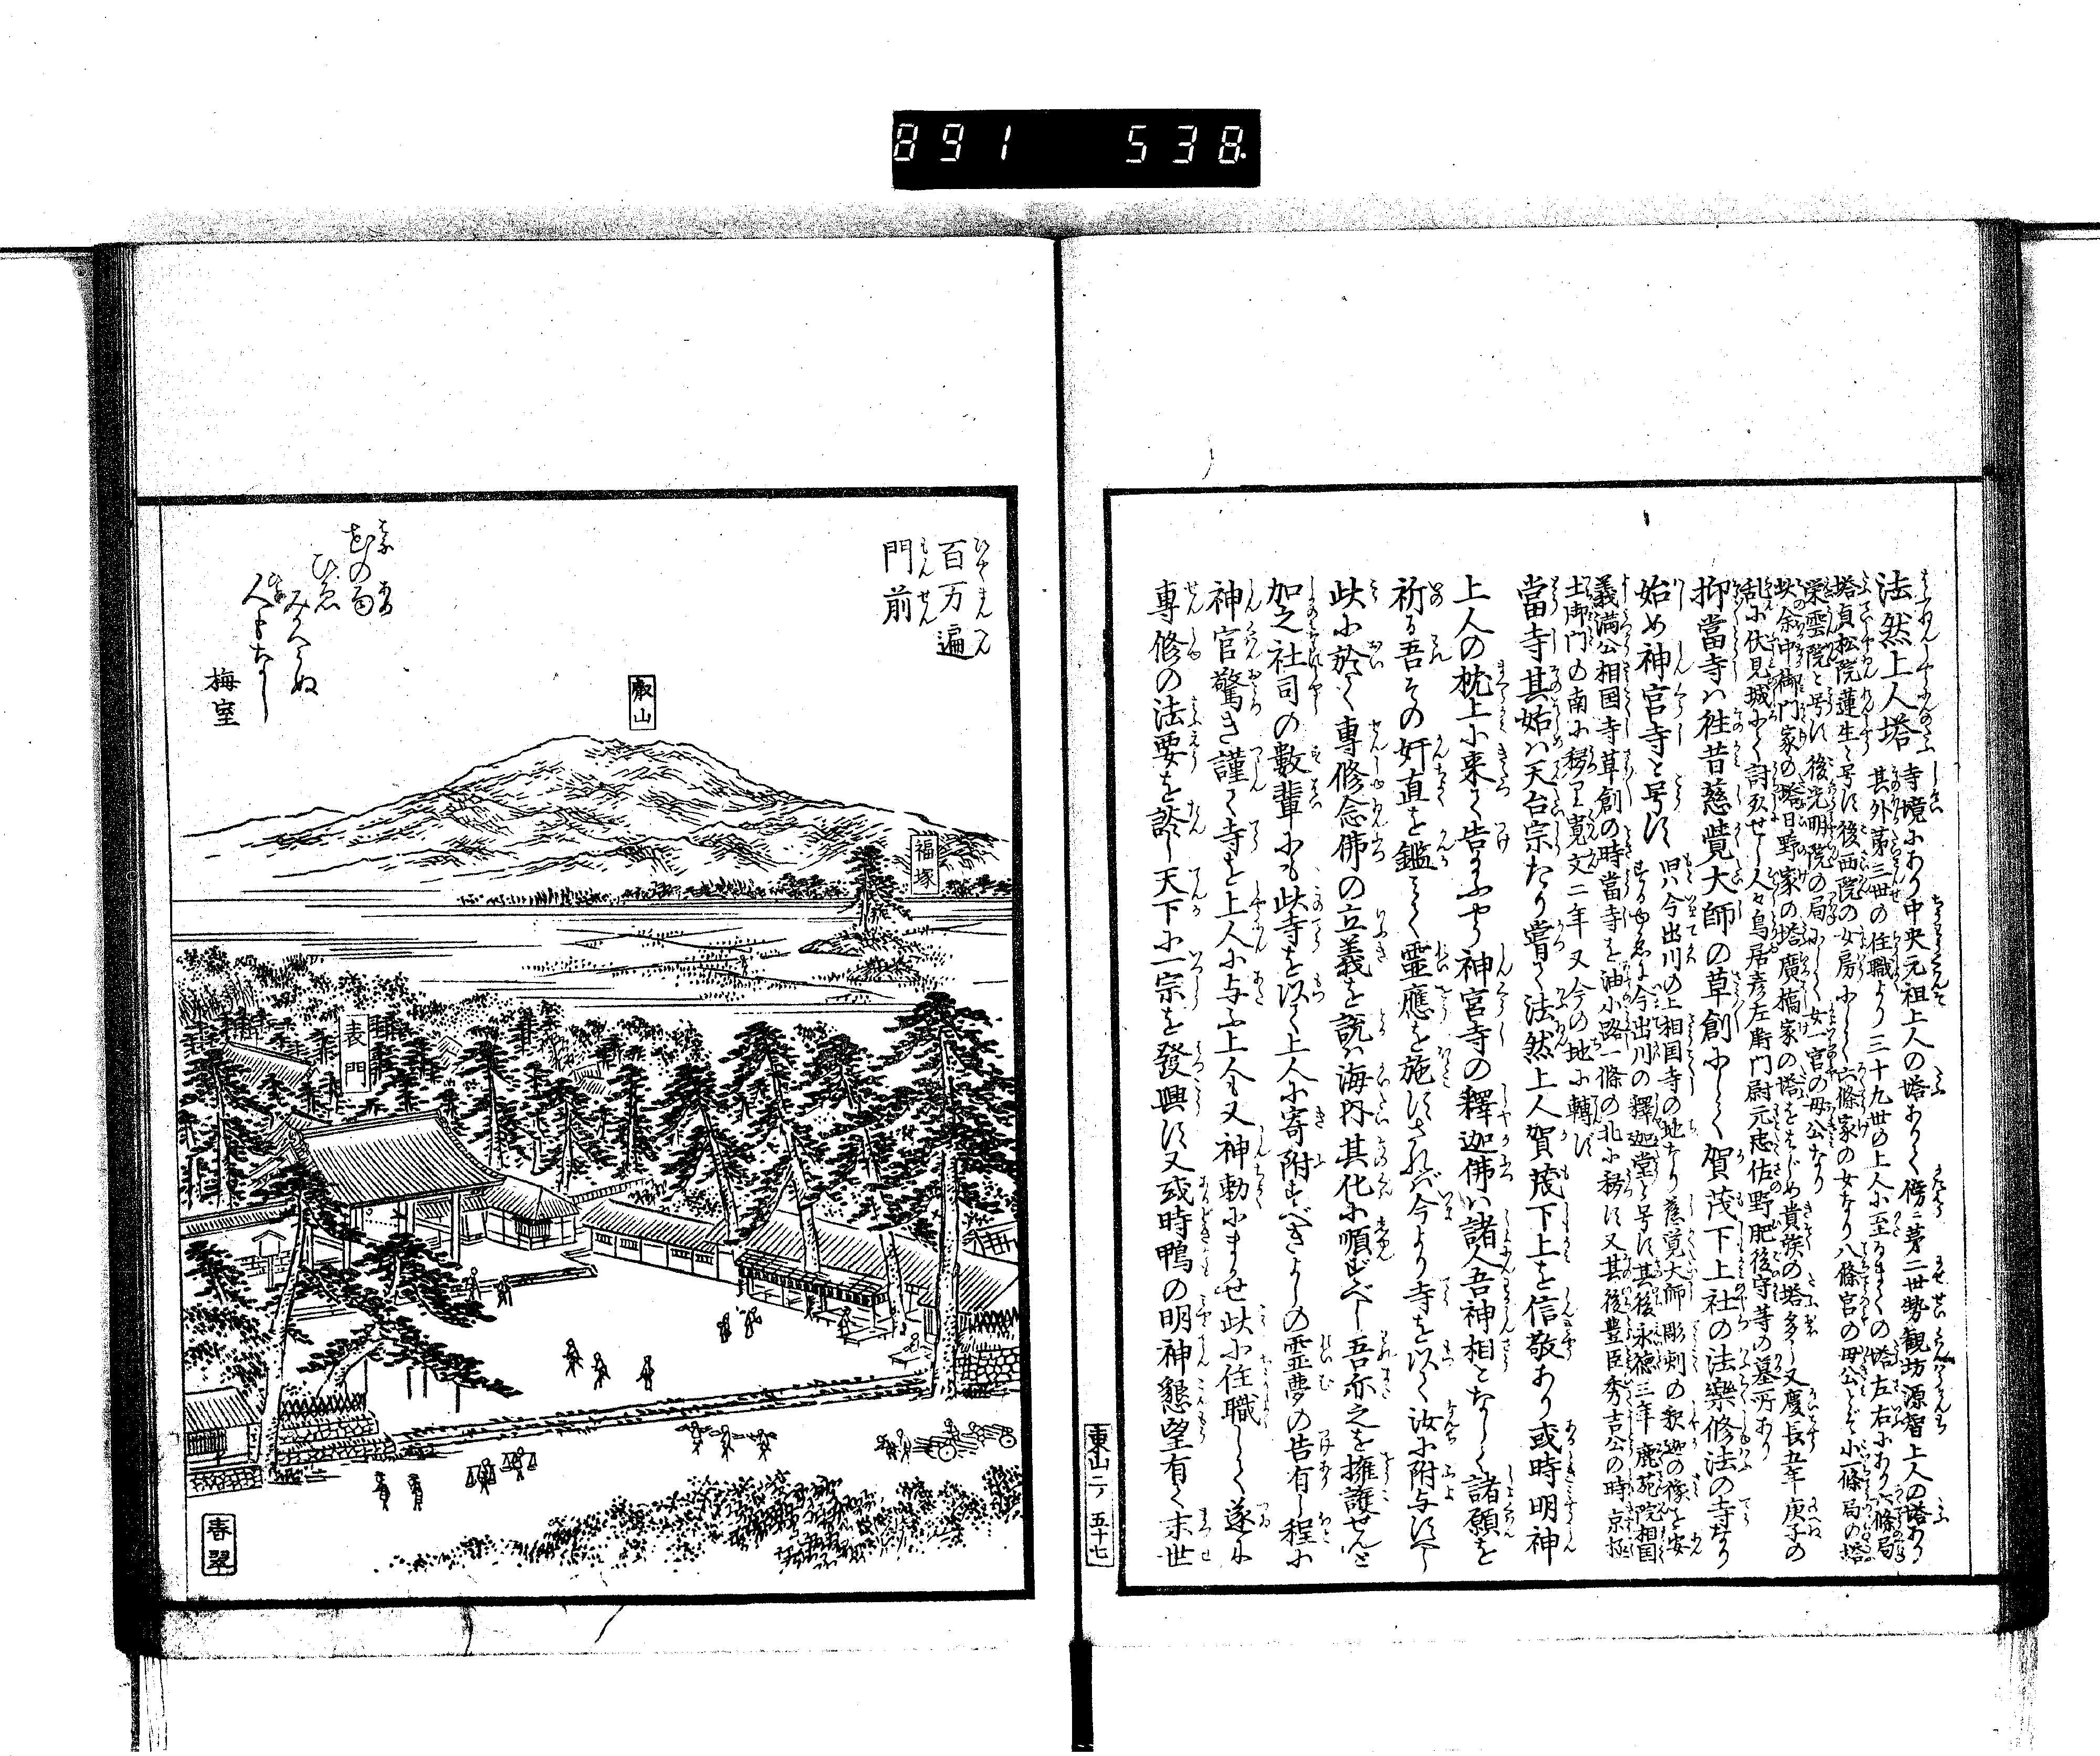 891 538
法然上人塔
寺境にあり中央元祖上人の塔ありて傍に第二世勢観坊源智上人の塔あり
其外第三世の住職より三十九世の上人に至るまての塔左右にあり六條局
塔貞松院蓮生と号す後西院の女房にして六條家の女なり八條宮の母公とぞ小一條局の塔
栄雲院と号す後光明院の局にして女一宮の母公なり
此余中御門家の塔日野家の塔廣橋家の塔をはじめ貴族の塔多し又慶長五年庚子の
乱に伏見城にて討死せし人々鳥居彦左衛門尉元忠佐野肥後守等の墓所あり
抑當寺ハ往昔慈覚大師の草創にして賀茂下上社の法樂修法の寺なり
始め神宮寺と号す
旧ハ今出川の上相国寺の地なり慈覚大師彫刻の釈迦の像を安
するゆゑに今出川の釋迦堂と号す其後永徳三年鹿苑院相国
義満公相国寺草創の時當寺を油小路一條の北に移す又其後豊臣秀吉公の時京極
土御門の南に移し寛文二年又今の地に轉ず
當寺其始ハ天台宗たり嘗て法然上人賀茂下上を信敬あり或時明神
上人の枕上に来て告まふやう神宮寺の釋迦佛ハ諸人吾神相となして諸願を
祈る吾その奸直を鑑ミて霊應を施すされバ今より寺を以て汝に附与すべし
此に於て専修念佛の立義を説ハ海内其化に順ずべし吾亦之を擁護せんと
加之社司の數輩にも此寺を以て上人に寄附すべきよしの霊夢の告有し程に
神官驚き謹て寺を上人に与ふ上人も又神勅にまかせ此に住職して遂に
專修の法要を談し天下に一宗を發興す又或時鴨の明神懇望有て末世
東山二ノ 五十七
百万遍
門前
叡山
福塚
表門
梅室
春翠